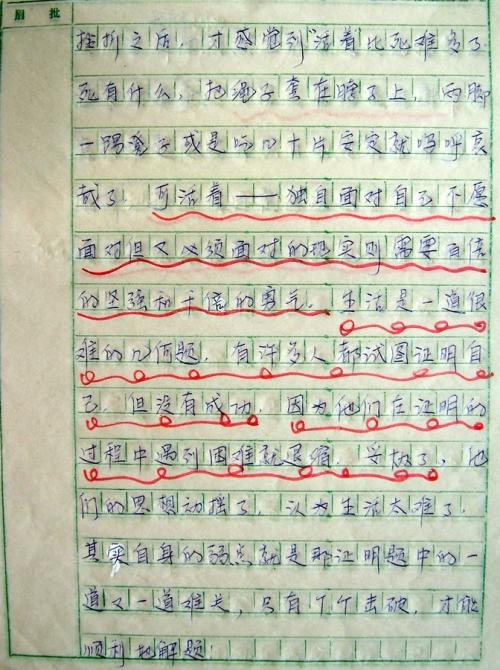 眉 批
挫折之后，才感觉到“活着”比死难多了
死有什么，把绳子套在脖子上，两脚
一踢凳子或是吃几十片安定就呜呼哀
哉了。可活着——独自面对自己不愿
面对但又必须面对的现实则需要百倍
的坚强和千倍的勇气。生活是一道很
难的几何题，有许多人都试图证明自
己，但没有成功，因为他们在证明的
过程中遇到困难就退缩，妥协了，他
们的思想动摇了，认为生活太难了。
其实自身的弱点就是那证明题中的一
道又一道难关，只有个个击破，才能
顺利地解题！